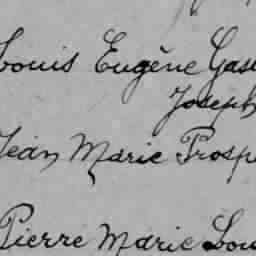 Louis Eugène Gas
Joseph
Jean Marie Prosp
Pierre Marie Lou